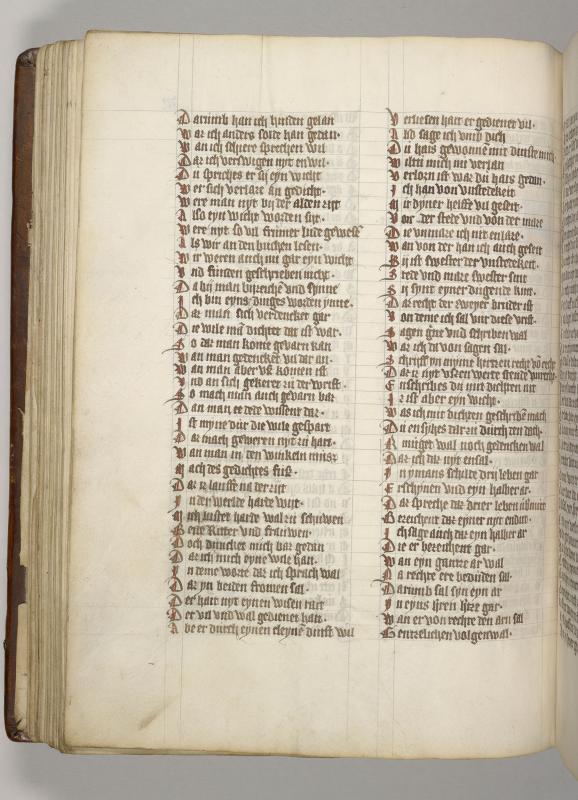 Darumb han ich hinden gelan
War ich anders solte han gedan.
Wan ich schiere sprechen wil
Dar ich verswigen nyt en wil.
Du spriches er sij eyn wicht
Wer sich verlart an gedicht.
Were man nyt bij der alden zijt
Also eyn wicht worden sijt.
Were nyt so vil frumer lude gewest
Als wir an den buchen lesen.
Wir weren auch nu gar eyn wicht
Vnd stunden geschrieben nicht.
Da bij man bezeichet vnd synne
Ich bin eyns dinges worden ynne.
Dar man sich verdencket gar
Die wile man dichtet dat ist war.
So dar man kome gevarn kan
Wan man gedencket vil dar an.
Wan man aber vsz komen ist
Vnd an sich gekeret zu der wrist.
So mach man auch gevarn bas
Dan man ee dede wissent das.
Ist myne dur die wile gespart
Dar nach geweren nyt zu hart.
Wan man in den winkeln muisz
Mach des gedichtes
Dar zu laufft na der zijt
In der werlde harde wijt.
Mich lustet harde wal zu schriwen
Gene Ritter vnd frauwen.
Doch duncket mich bas gedan
Dar ich myn eyne wile han.
In deme worte dar ich sprach wal
Dar yn beiden fromen sal.
Der hait nyt eynen wisen rait
Der vil vnd wal gedienet hait.
Aber durch eynen cleynen dinst wil
Verliesen hait er gedienet vil.
Also sage ich vmb dich
Du hais gewonnen mit dinste mich
Wiltu mich nu verlan
Verlorn ist war du hais gedan.
Ich han von vnstedekeit
Mit dyner helffe vil geseit.
Von der stede vnd von der mare
Die vnmare ich nit enlare.
Wan von der han ich auch geseit
Sij ist swester der vnstedekeit.
Stede vnd mare swester sint
Sij synt eyner dugende kint.
Dar recht der zweyer bruder ist
Von deme ich sal vur diese vrist.
Sagen gerne vnd schriben wal
War ich da von sagen sal.
Schrijff yn myme hertzen recht
Dar iz nyt vszen werte stende
Enschribes du mit dichten nit
Ir ist aber eyn wicht.
Was ich mit dichten geschriben mach
Du ensijhes dar zu durch den dach.
Murget wal noch gedencken wal
Dar ich dar nyt ensal.
In ymans schilde drij leben gar
Erschynen vnd eyn halber ar.
Dar spreche dar drier leben
Bezeichent dar eyner nyt endut.
Ich sage auch dar eyn halber ar
Die er bezeichent gar.
Wan eyn gantze ar wal
Na rechte ere beduden sal.
Darumb sal syn eyn ar
In eyns heren hertze gar.
Wan er von rechte den arn sal
Gentzelichen volgen wal.